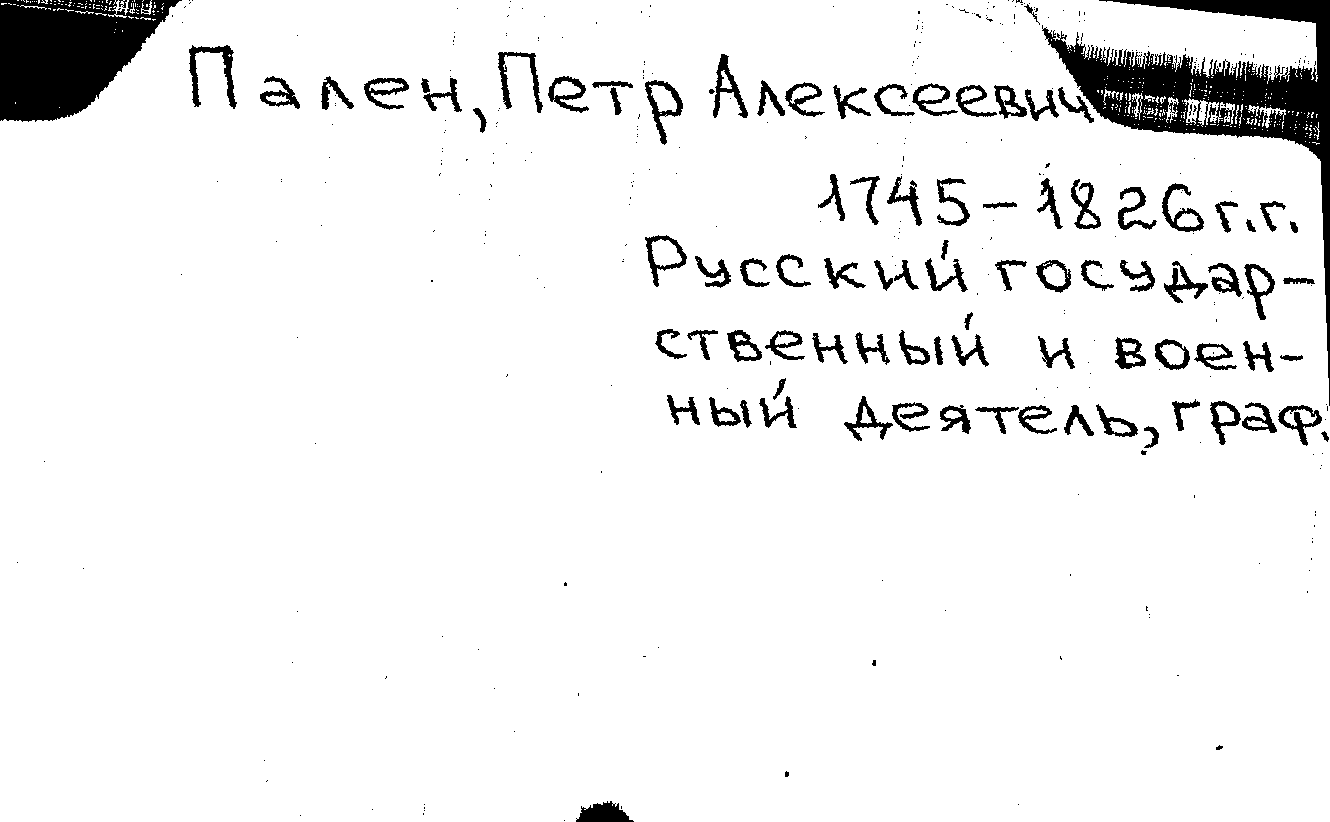 Пален, Петр Алексеевич
1745-1826 г.г.
Русский государ-
ственный и воен-
ный деятель, граф.